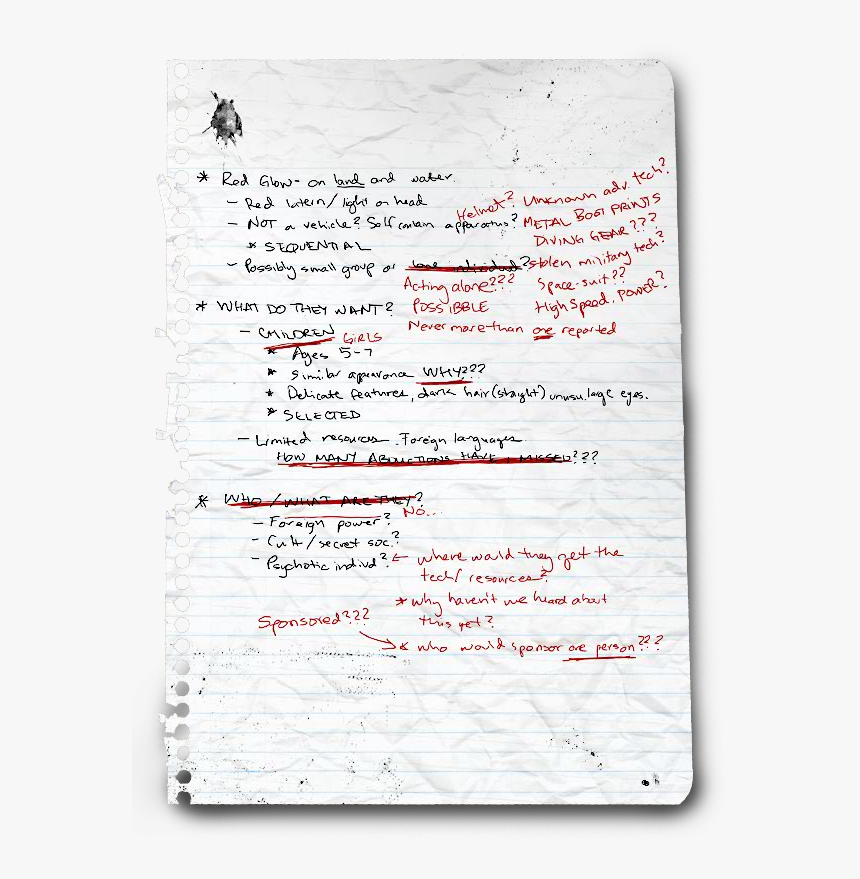 * Red Glow- on land and water.
- Red latern/light on head
Helmet? Unknown adv. tech?
- NOT a vehicle? Self contain apparatus? METAL BOOT PRINTS
DIVING GEAR???
* SEQUENTIAL
- Possibly small group or lone individual? stolen military tech?
Acting alone??? Space-suit??
* WHAT DO THEY WANT? POSSIBBLE High Speed. POWER?
Never more than one reported
- CHILDREN GIRLS
* Ages 5-7
* Similar apearance WHY???
* Delicate features, dark hair (staight) unusu. large eyes.
* SELECTED
- Limited resources. Foreign languages.
HOW MANY ABDUCTIONS HAVE I MISSED???
* WHO/WHAT ARE THEY?
NO...
- Foreign power?
- Cult/secret soc.?
- Psychotic individ? ← where would they get the
tech/resources?
* why haven't we heard about
this yet?
Sponsored???
* who would sponsor one person???